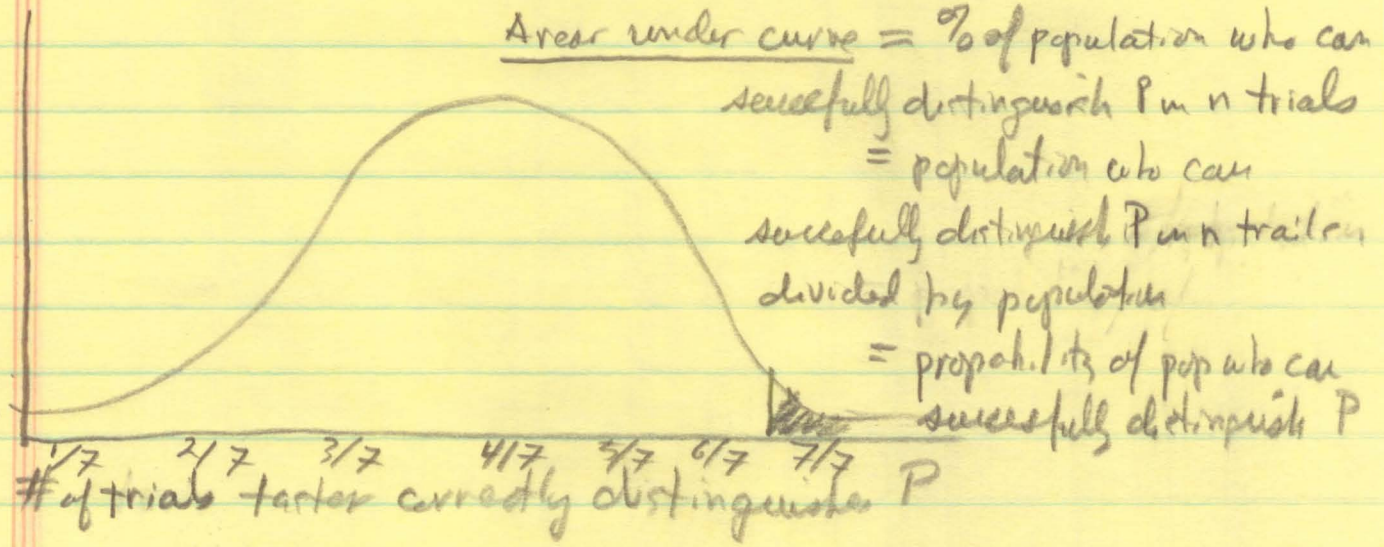 Area under curve = % of population who can
sucessfully distinguish P in n trials
= population who can
sucessfully distinguish P in n
divided by population
= probability of pop who can
successfully distinguish P
1/7 2/7 3/7 4/7 5/7 6/7 7/7
# of trials taster correctly distinguishes P